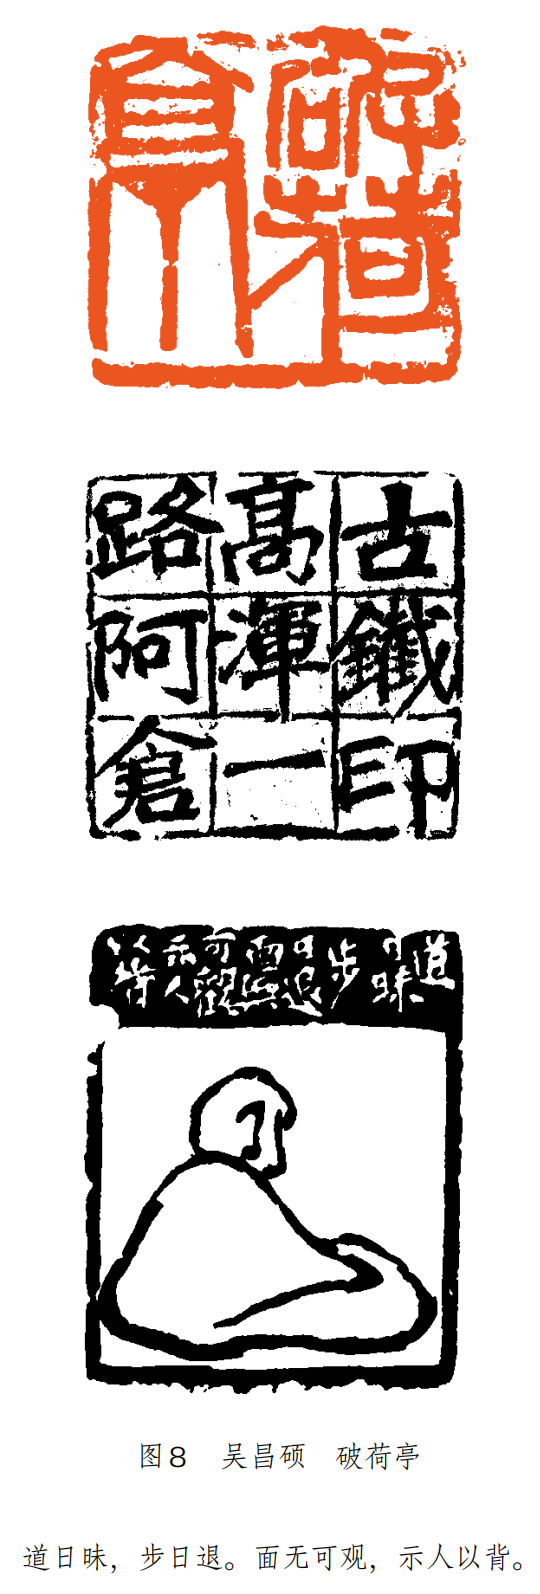 破荷亭
古鐵印
高渾一
路阿倉
道日昧
步日退
面無可觀
示人以背
图8 吴昌硕 破荷亭
道日昧，步日退。面无可观，示人以背。